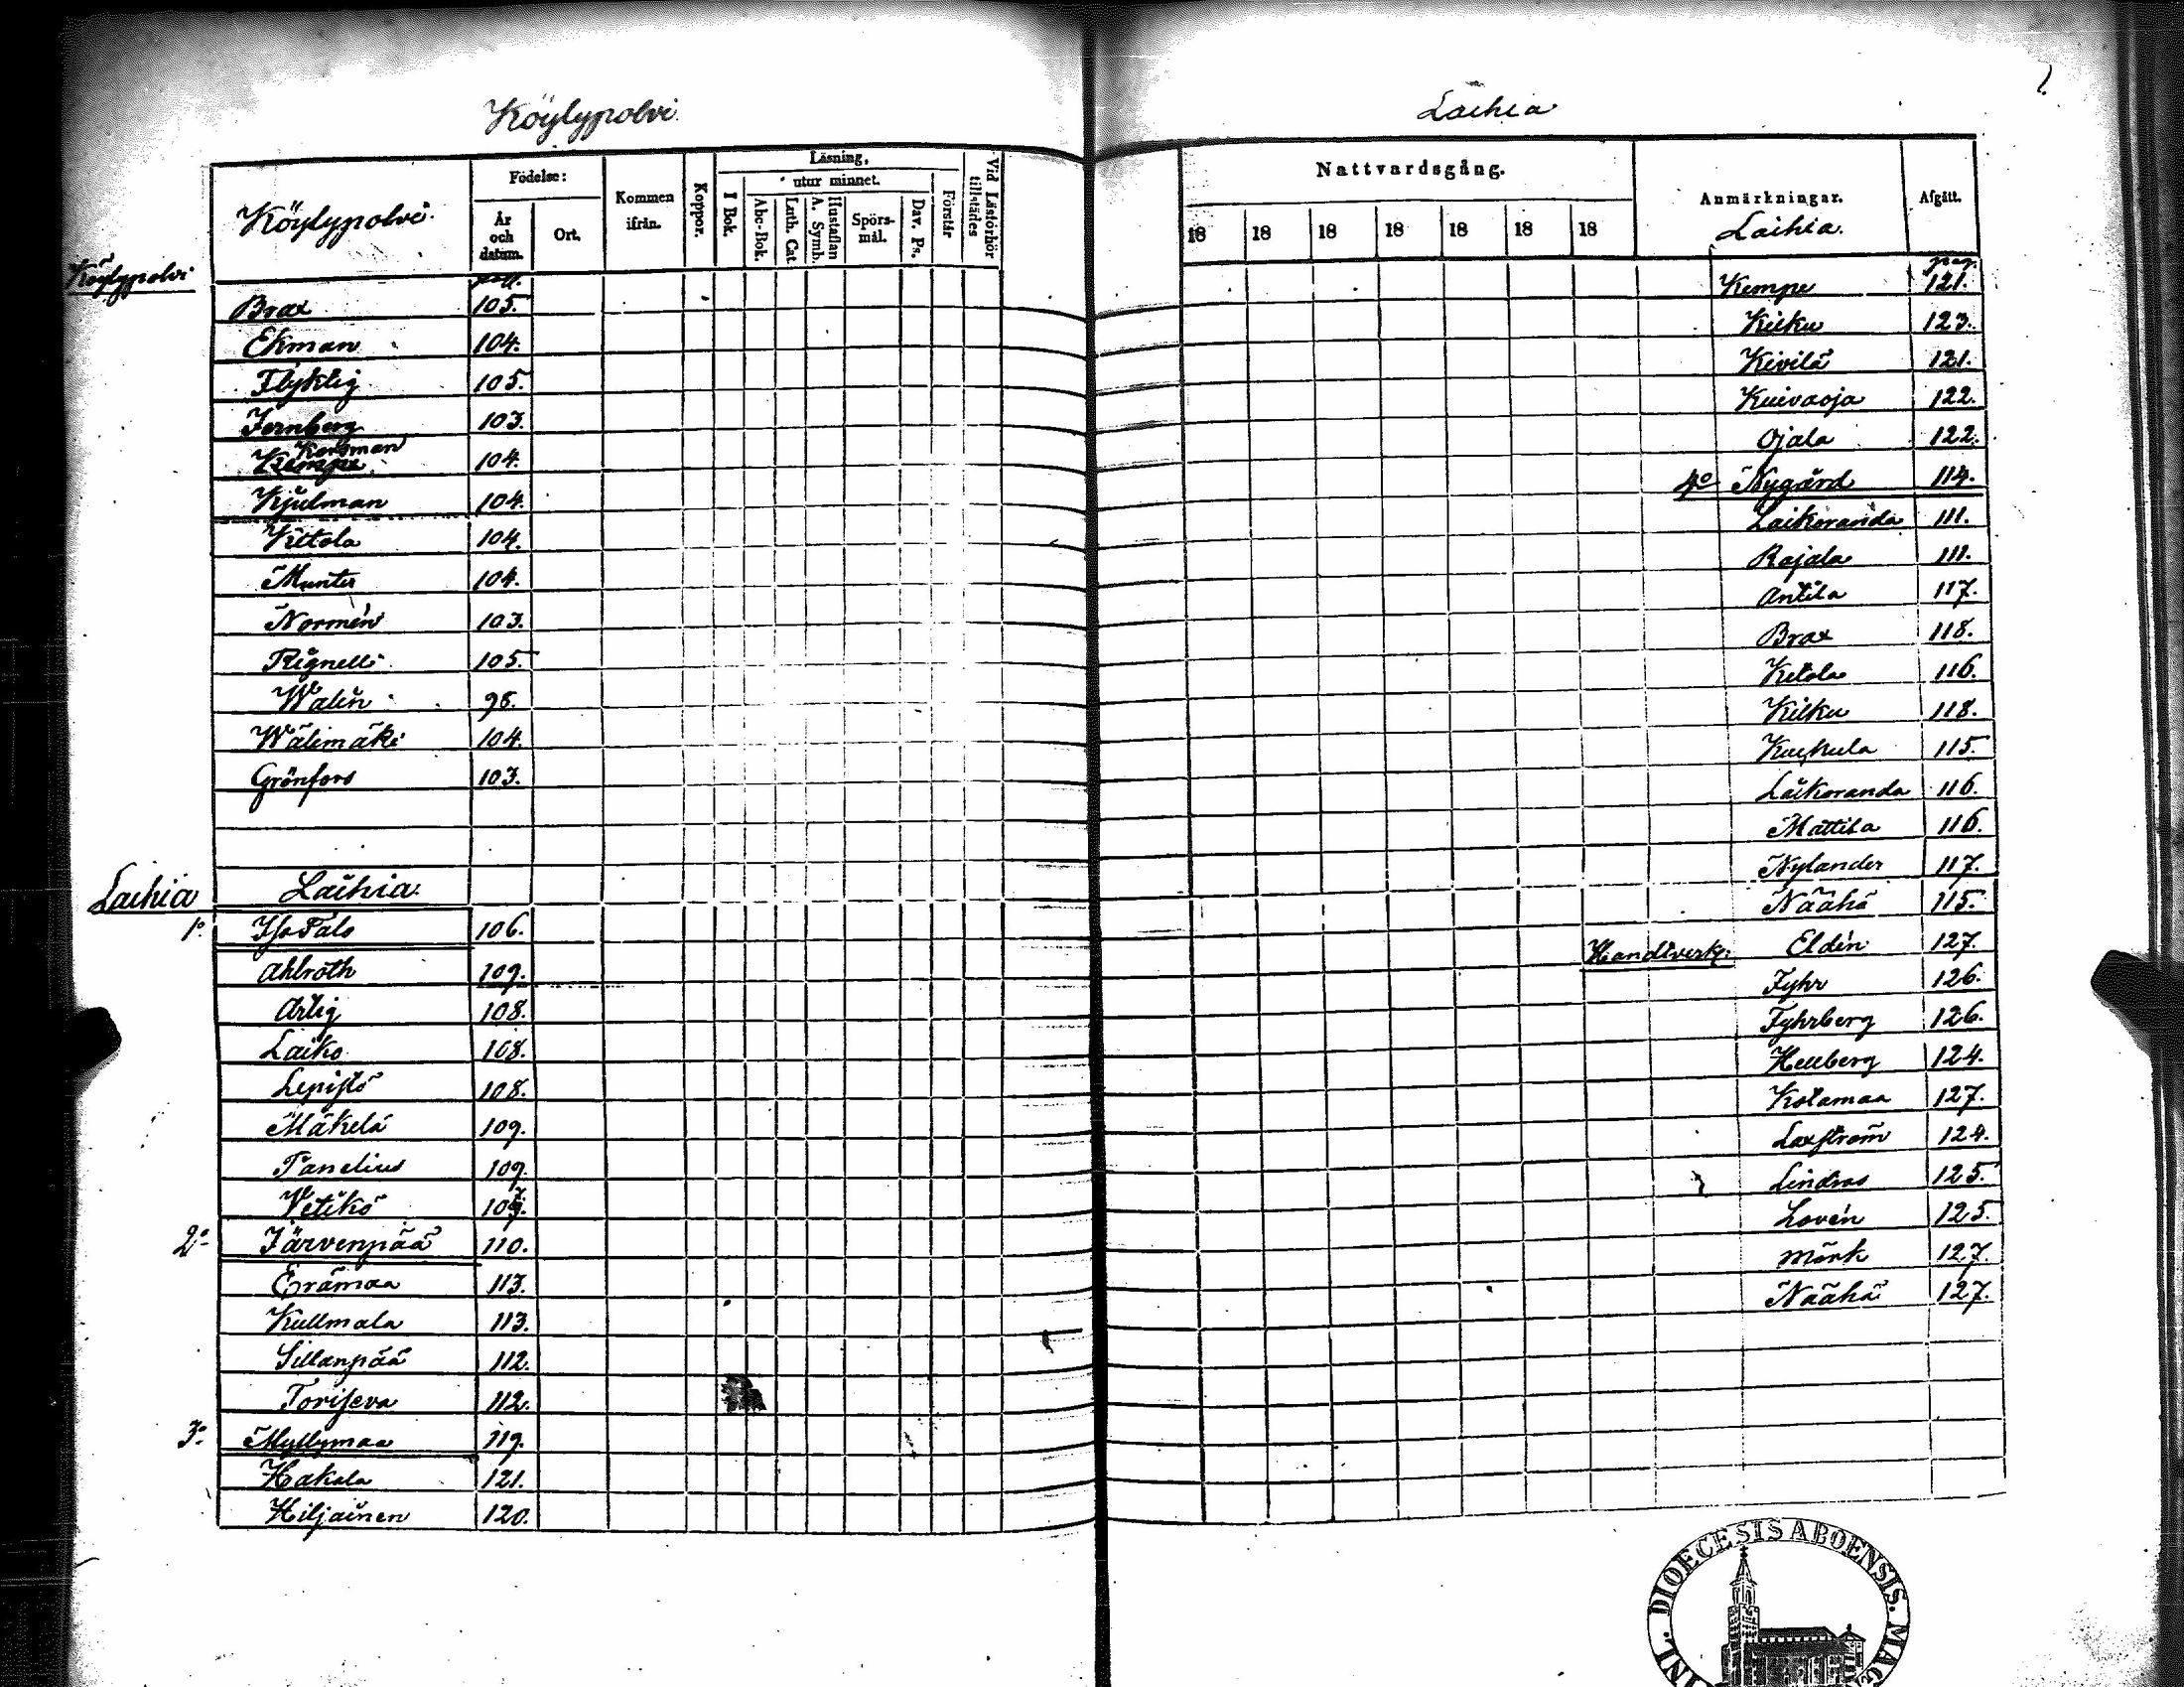 Köylypolvi
Köylypolvi.
Födelse:
År och datum.
Ort.
Kommen ifrån.
Koppor.
Läsning,
utur minnet.
I Bok.
Abc-Bok.
Luth. Cat.
Hustaflan A. Symb.
Spörs-mål.
Dav. Ps.
Förstår
Vid Läsförhör tillstädes
Köylypolvi
pag.
Brax 105.
Ekman 104.
Flyktig 105.
Jernberg 103.
Korsman
Kempe 104.
Kjulman 104.
Kettola 104.
Munter 104.
Normén 103.
Rignell 105.
Walin 98.
Wälimäki 104.
Grönfors 103.
Laihia Laihia.
1o. Iso Talo 106.
Ahlroth 109.
Ärlig 108.
Laiko 108.
Lepistö 108.
Mäkelä 109.
Panelius 109.
Vetikö
2o. Järvenpää 110.
Erämaa 113.
Kullmala 113.
Sillanpää 112.
Toriseva 112.
3o. Myllymaa 119.
Hakala 121.
Hiljainen 120.
Laihia
Nattvardsgång.
18 18 18 18 18 18 18
Anmärkningar.
Laihia.
Afgått.
pag.
Kempe 121.
Kilku 123.
Kivilä 121.
Kuivaoja 122.
Ojala 122.
4o Nygård 114.
Laikoranda 111.
Rajala 111.
Antila 117.
Brax 118.
Ketola 116.
Kilku 118.
Kuckula 115.
Laikoranda 116.
Mattila 116.
Nylander 117.
Näähä 115.
Handtverk: Eldén 127.
Fyhr 126.
Fyhrberg 126.
Hellberg 124.
Kotamaa 127.
Laxström 124.
Lindros 125.
Lovén 125.
Mörk 127.
Näähä 127.
DIOECESIS ABOENSIS. MAG